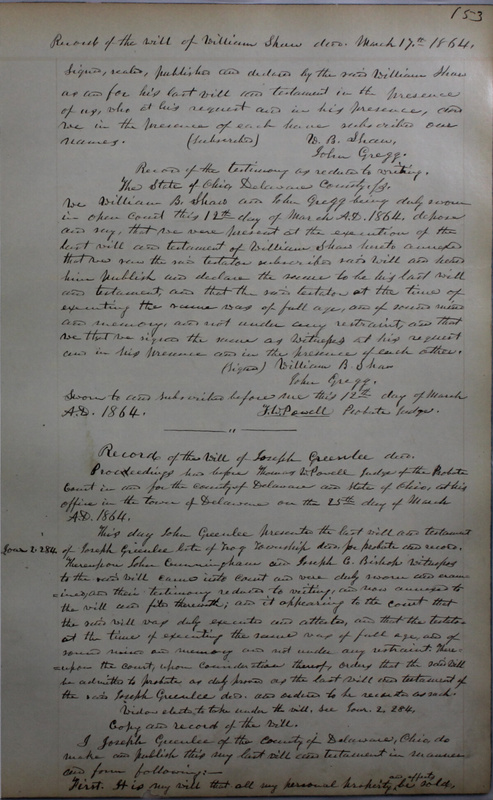 153
Record of the will of William Shaw decd. March 17th 1864.
Signed, sealed, published and declared by the said William Shaw
as and for his last will and testament in the presence
of us, who at his request and in his presence, and
we in the presence of each have subscribed our
names. (Subscribed) W. B. Shaw,
John Gregg.
Record of the testimony as reduced to writing.
The State of Ohio Delaware County, ss.
We William B. Shaw and John Gregg being duly sworn
in open Court this 12th day of March A.D. 1864, depose
and say, that we were present at the execution of the
last will and testament of William Shaw hereto annexed
that we saw the said testator subscribe said will and heard
him publish and declare the same to be his last will
and testament, and that the said testator at the time of
executing the same was of full age, and of sound mind
and memory, and not under any restraint, and that
we signed the same as witnesses at his request
and in his presence and in the presence of each other.
(Signed) William B. Shaw
John Gregg.
Sworn to and subscribed before me this 12th day of March
A.D. 1864. T. W. Powell Probate Judge.
Record of the Will of Joseph Greenlee decd.
Proceedings had before Thomas W. Powell Judge of the Probate
Court in and for the county of Delaware and State of Ohio, at his
office in the town of Delaware on the 25th day of March
A.D. 1864.
This day John Greenlee presented the last will and testament
Jour. 2. 284. of Joseph Greenlee late of Troy Township decd for probate and record.
Thereupon John Cunningham and Joseph C. Bishop witnesses
to the said will came into court and were duly sworn and exam
=ined, and their testimony reduced to writing, and now annexed to
the will and filed therewith; and it appearing to the court that
the said will was duly executed and attested, and that the testator
at the time of executing the same was of full age, and of
sound mind and memory and not under any restraint. There=
=upon the court, upon consideration thereof, orders that the said will
be admitted to probate as duly proved as the last will and testament of
the said Joseph Greenlee decd. and ordered to be recorded as such.
Widow elects to take under the will. see Jour. 2, 284.
Copy and record of the will.
I Joseph Greenlee of the County of Delaware, Ohio do
make and publish this my last will and testament in manner
and form following:—
First. It is my will that all my personal property, and effects be sold,